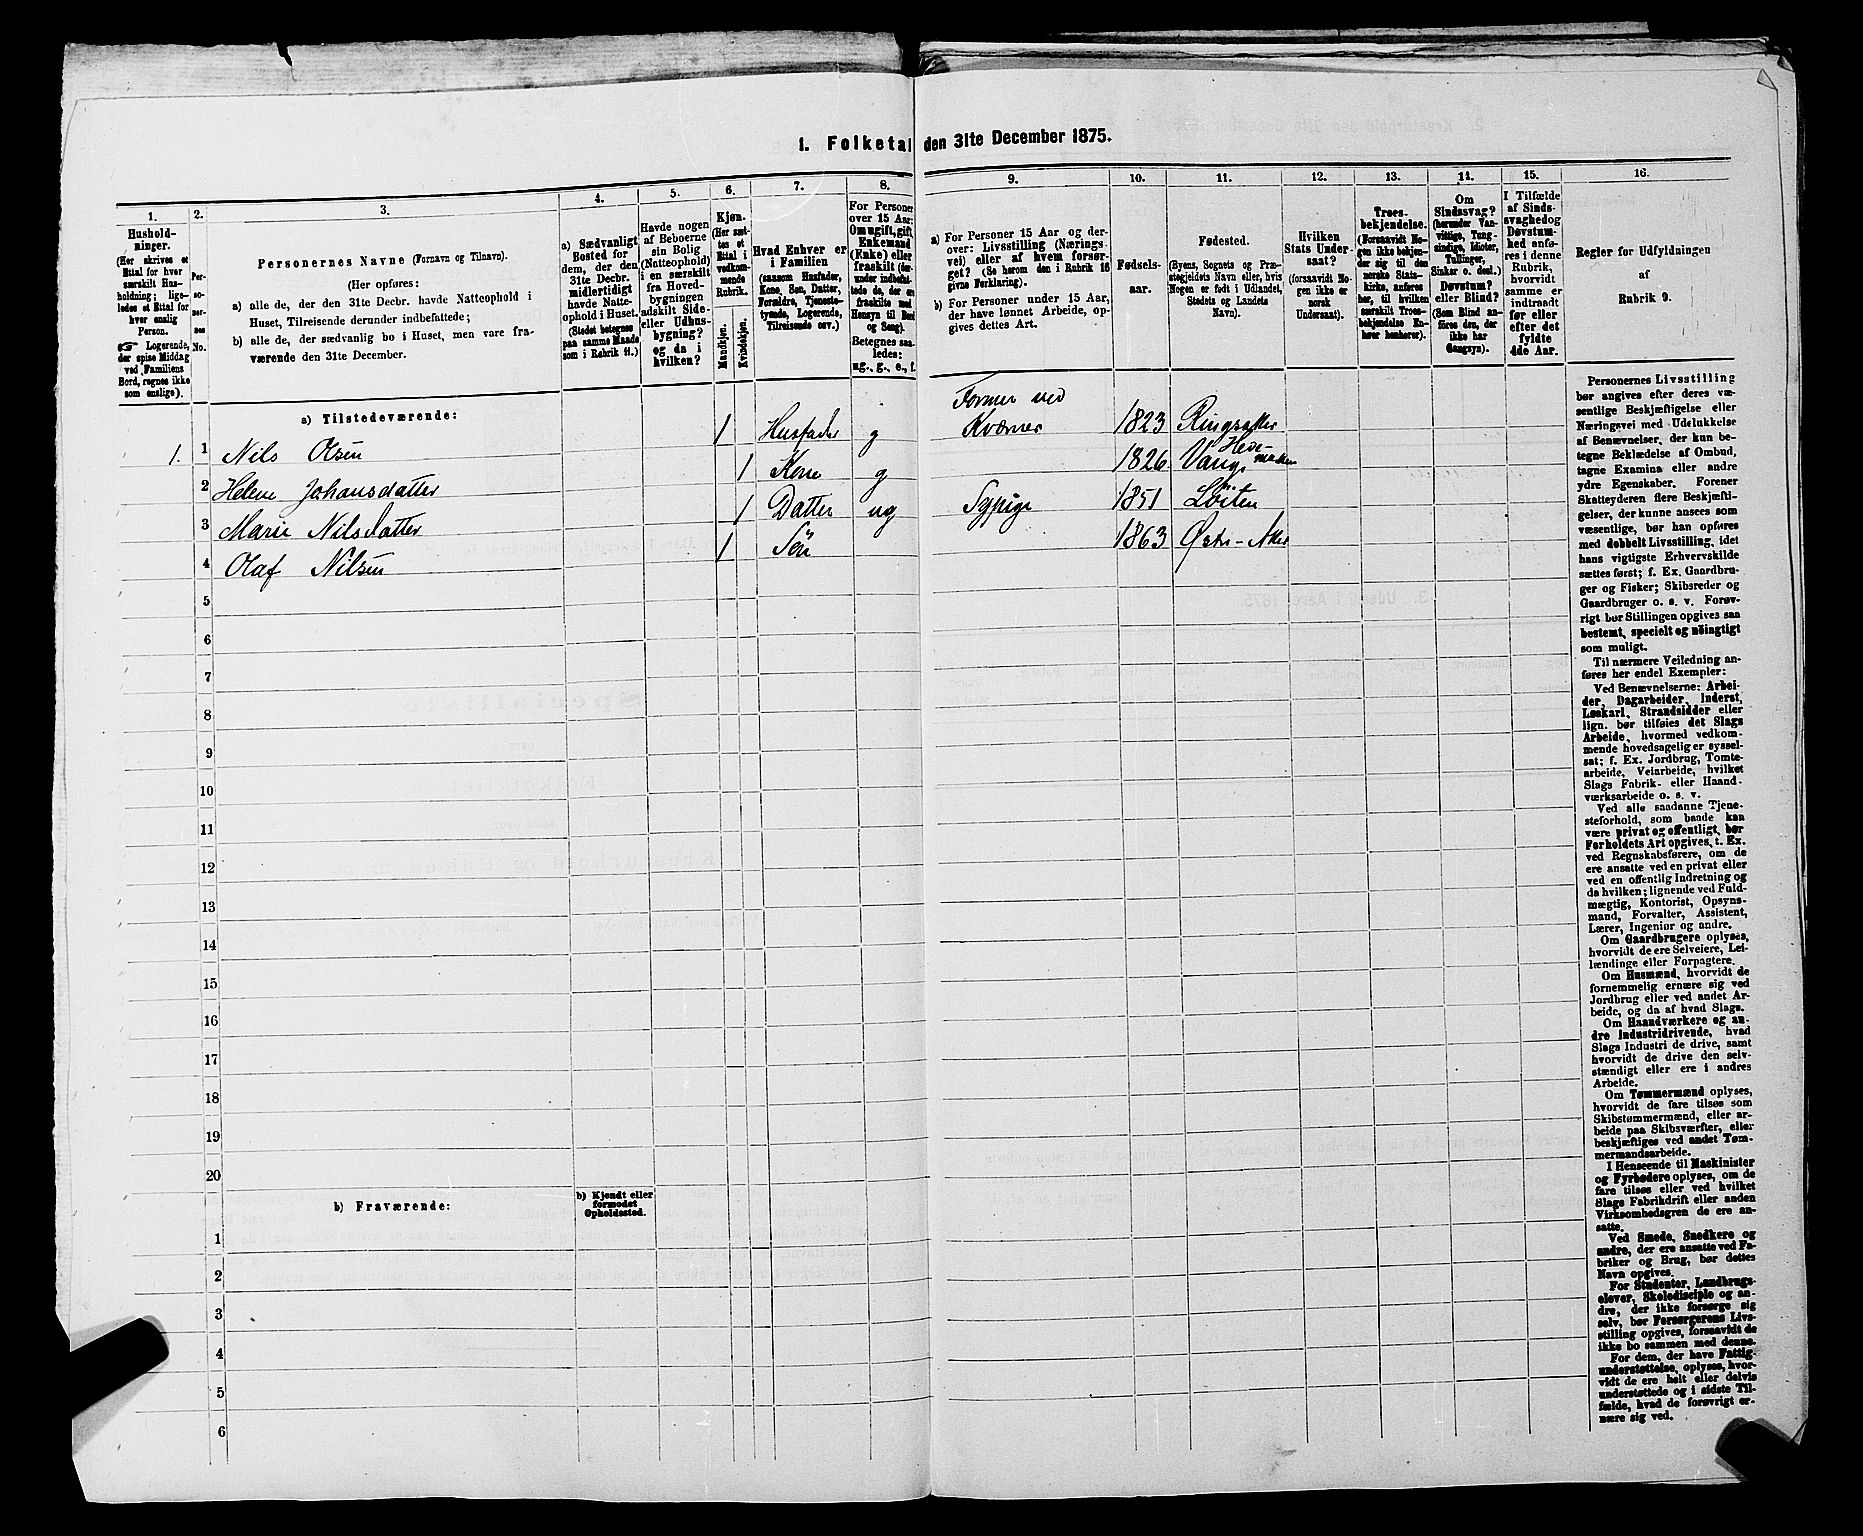 1. Folketal den 31te December 1875.
1.
2.
3.
4.
5.
6.
7.
8.
9.
10.
11.
12.
13.
14.
15.
16.
Hushold-
ninger.
(Her skrives et
Ettal for hver
særskilt Hus-
holdning; lige-
ledes et Ettal for
hver enslig
Person.
☞ Logerende,
der spise Middag
ved Familiens
Bord, regnes ikke
som enslige).
Per-
so-
ner-
nes
No.
Personernes Navne (Fornavn og Tilnavn).
(Her opføres:
a) alle de, der den 31te Decbr. havde Natteophold i
Huset, Tilreisende derunder indbefattede;
b) alle de, der sædvanlig bo i Huset, men vare fra-
værende den 31te December.
a) Sædvanligt
Bosted for
dem, der den
31te Decbr.
midlertidigt
havde Natte-
ophold i Huset.
(Stedet betegnes
paa samme Maade
som i Rubrik 11.)
Havde nogen
af Beboerne
sin Bolig
(Natteophold)
i en særskilt
fra Hoved-
bygningen
adskilt Side-
eller Udhus-
bygning?
og da i
hvilken?
Kjøn.
(Her sæt-
tes et
Ettal i
vedkom-
mende
Rubrik.
Mandkjøn.
Kvindekjøn.
Hvad Enhver er
i Familien
(saasom Husfader,
Kone, Søn, Datter,
Forældre, Tjeneste-
tyende, Logerende,
Tilreisende osv.)
For Personer
over 15 Aar:
Om ugift, gift,
Enkemand
(Enke) eller
fraskilt (der-
under indbefat-
tede de, der ere
fraskilte med
Hensyn til Bord
og Seng).
Betegnes saa-
ledes:
ug., g., e., f.
a) For Personer 15 Aar og der-
over: Livsstilling (Nærings-
vei) eller af hvem forsør-
get? (Se herom den i Rubrik 16
givne Forklaring).
b) For Personer under 15 Aar,
der have lønnet Arbeide, op-
gives dettes Art.
Fødsels-
aar.
Fødested.
(Byens, Sognets og Præ-
stegjeldets Navn eller, hvis
Nogen er født i Udlandet,
Stedets og Landets
Navn).
Hvilken
Stats Under-
saat?
(forsaavidt No-
gen ikke er
norsk
Undersaat).
Troes-
bekjendelse.
(Forsaavidt No-
gen ikke bekjen-
der sig til den
norske Stats-
kirke, anføres
her, til hvilken
særskilt Troes-
bekjendelse En-
hver henhører).
Om
Sindssvag?
(herunder Van-
vittige, Tung-
sindige, Idioter,
Tullinger,
Sinker o. desl.)
Døvstum?
eller Blind?
(Som Blind an-
føres den, der
ikke har
Gangsyn).
I Tilfælde
af Sinds-
svaghed og
Døvstum-
hed anfø-
res i denne
Rubrik,
hvorvidt
samme er
indtraadt
før eller
efter det
fyldte
4de Aar.
Regler for Udfyldningen
af
Rubrik 9.
a) Tilstedeværende:
1. 1 Nils Olsen 1 Husfader g Former ved
Kværner 1823 Ringsaker
2 Helene Johansdatter 1 Kone g 1826 Vang, Hede-
marken
3 Marie Nilsdatter 1 Datter ug Sypige 1851 Løiten
4 Olaf Nilsen 1 Sön 1863 Østr-Aker
5
6
7
8
9
10
11
12
13
14
15
16
17
18
19
20
b) Fraværende:
b) Kjendt eller
formodet
Opholdssted.
1
2
3
4
5
6
Personernes Livsstilling
bør angives efter deres væ-
sentlige Beskjæftigelse eller
Næringsvei med Udelukkelse
af Benævnelser, der kun be-
tegne Beklædelse af Ombud,
tagne Examina eller andre
ydre Egenskaber. Forener
Skatteyderen flere Beskjæfti-
gelser, der kunne ansees som
væsentlige, bør han opføres
med dobbelt Livsstilling, idet
hans vigtigste Erhvervskilde
sættes først; f. Ex. Gaardbru-
ger og Fisker; Skibsreder og
Gaardbruger o. s. v. Forøv-
rigt bør Stillingen opgives saa
bestemt, specielt og nöiagtigt
som muligt.
Til nærmere Veiledning an-
føres her endel Exempler:
Ved Benævnelserne: Arbei-
der, Dagarbeider, Inderst,
Løskarl, Strandsidder eller
lign. bør tilføies det Slags
Arbeide, hvormed vedkom-
mende hovedsagelig er syssel-
sat; f. Ex. Jordbrug, Tomte-
arbeide, Veiarbeide, hvilket
Slags Fabrik- eller Haand-
værksarbeide o. s. v.
Ved alle saadanne Tjene-
steforhold, som baade kan
være privat og offentligt, bør
Forholdets Art opgives, t. Ex.
ved Regnskabsførere, om de
ere ansatte ved en privat eller
ved en offentlig Indretning og
da hvilken; lignende ved Fuld-
mægtig, Kontorist, Opsyns-
mand, Forvalter, Assistent,
Lærer, Ingeniør og andre.
Om Gaardbrugere oplyses,
hvorvidt de ere Selveiere, Lei-
lændinge eller Forpagtere.
Om Husmænd, hvorvidt de
fornemmelig ernære sig ved
Jordbrug eller ved andet Ar-
beide, og da af hvad Slags.
Om Haandværkere og an-
dre Industridrivende, hvad
Slags Industri de drive, samt
hvorvidt de drive den selv-
stændigt eller ere i andres
Arbeide.
Om Tømmermænd oplyses,
hvorvidt de fare tilsøs som
Skibstømmermænd, eller ar-
beide paa Skibsværfter, eller
beskjæftiges ved andet Tøm-
mermandsarbeide.
I Henseende til Maskinister
og Fyrbødere oplyses, om de
fare tilsøs eller ved hvilket
Slags Fabrikdrift eller anden
Virksomhedsgren de ere an-
satte.
Ved Smede, Snedkere og
andre, der ere ansatte ved Fa-
briker og Brug, bør dettes
Navn opgives.
For Studenter, Landbrugs-
elever, Skoledisciple og an-
dre, der ikke forsørge sig
selv, bør Forsørgerens Livs-
stilling opgives, forsaavidt de
ikke bo sammen med denne.
For dem, der have Fattig-
understøttelse, oplyses, hvor-
vidt de ere helt eller delvis
understøttede og i sidste Til-
fælde, hvad de forøvrigt er-
nære sig ved.